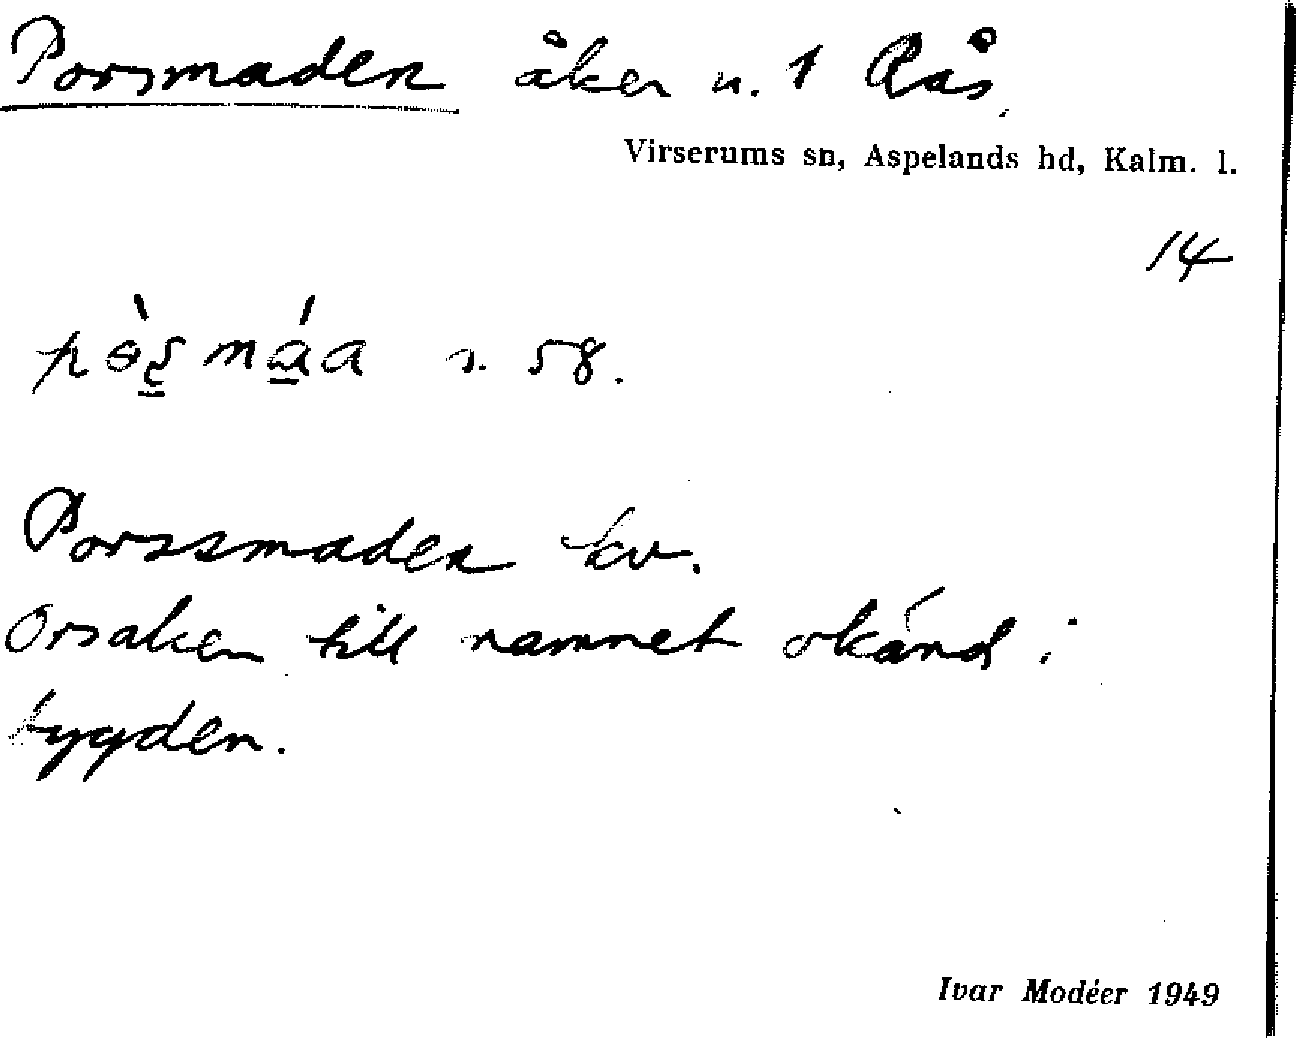 Porsmaden åker u. 1 Rås.
Virserums sn, Aspelands hd, Kalm. l.
14
s. 58.
Porssmaden kv.
Orsaken till namnet okänd i
bygden.
Ivar Modéer 1949